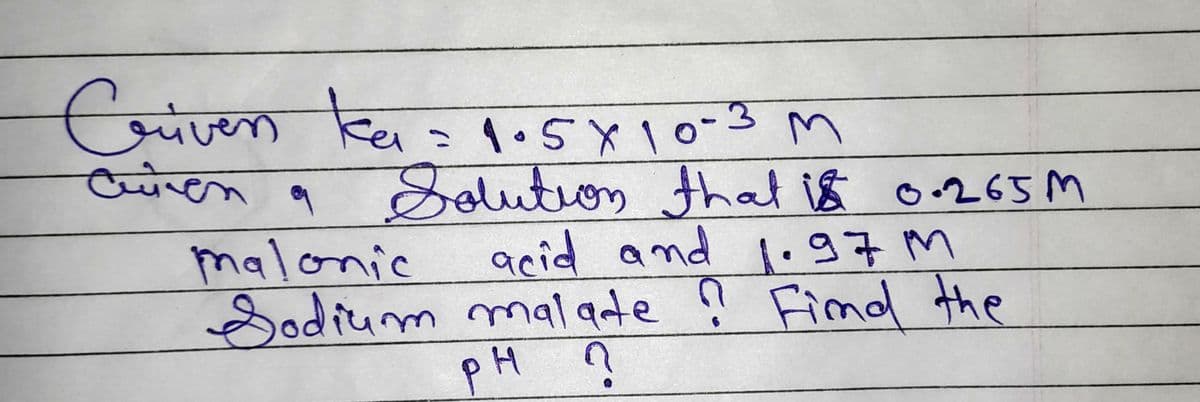 Given ka = 1.5 X 10-3 M
Given a Solution that is 0.265M
malonic acid and 1.97 M
Sodium malate ? Find the
pH ?